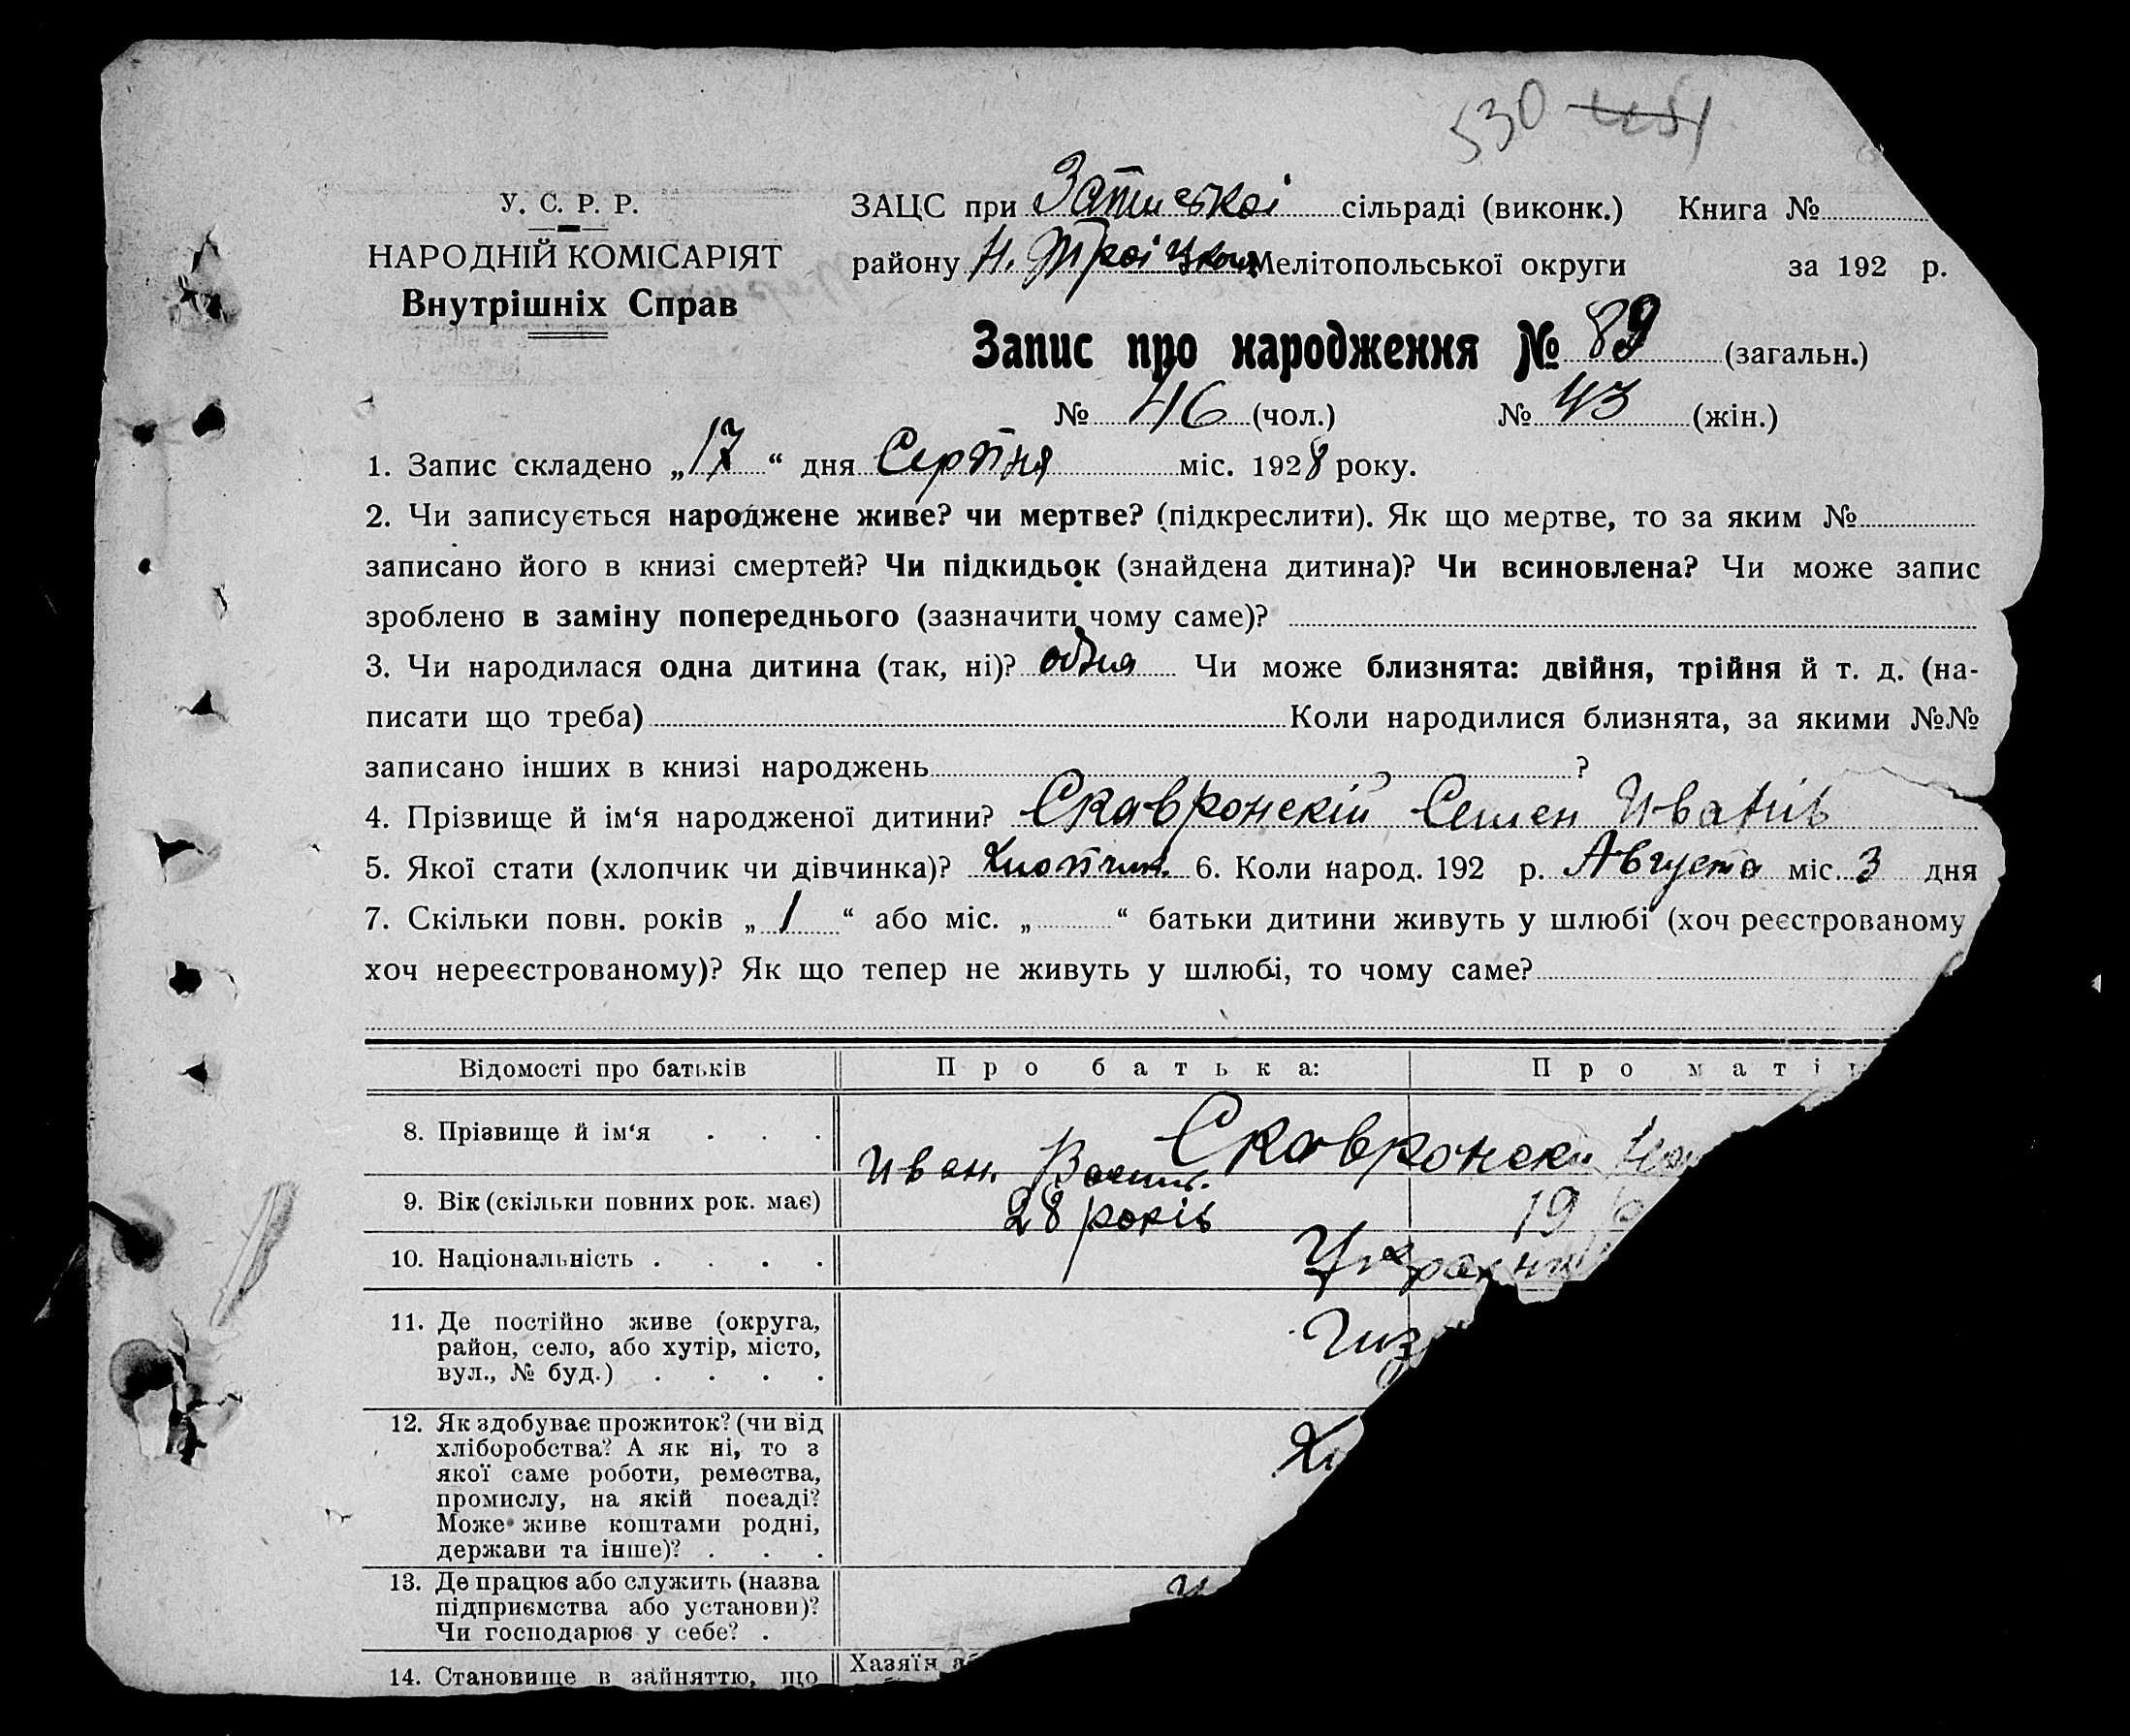 530 451
У. С. Р. Р.
НАРОДНІЙ КОМІСАРІЯТ
Внутрішніх Справ
ЗАЦС при сільраді (виконк.) Книга №
району Н. Троїцкой Мелітопольської округи за 192 р.
Запис про народження № 89 (загальн.)
№ 46 (чол.) № 43 (жін.)
1. Запис складено „17“ дня Серпня міс. 1928 року.
2. Чи записується народжене живе? чи мертве? (підкреслити). Як що мертве, то за яким №
записано його в книзі смертей? Чи підкидьок (знайдена дитина)? Чи всиновлена? Чи може запис
зроблено в заміну попереднього (зазначити чому саме)?
3. Чи народилася одна дитина (так, ні)? одна Чи може близнята: двійня, трійня й т. д. (на-
писати що треба) Коли народилися близнята, за якими №№
записано інших в книзі народжень ?
4. Прізвище й ім‘я народженої дитини? Скавронскій Семен Иванів
5. Якої стати (хлопчик чи дівчинка)? Хлопчик 6. Коли народ. 192 р. Августа міс. 3 дня
7. Скільки повн. років „1“ або міс. „ “ батьки дитини живуть у шлюбі (хоч реєстрованому
хоч нереєстрованому)? Як що тепер не живуть у шлюбі, то чому саме?
Відомості про батьків Про батька: Про маті
8. Прізвище й ім‘я Скавронски
Иван. Васил.
9. Вік (скільки повних рок. має) 28 років 19
10. Національність
11. Де постійно живе (округа,
район, село, або хутір, місто,
вул., № буд.)
12. Як здобуває прожиток? (чи від
хліборобства? А як ні, то з
якої саме роботи, ремества,
промислу, на якій посаді?
Може живе коштами родні,
держави та інше)?
13. Де працює або служить (назва
підприємства або установи)?
Чи господарює у себе?
14. Становище в зайняттю, що Хазяїн